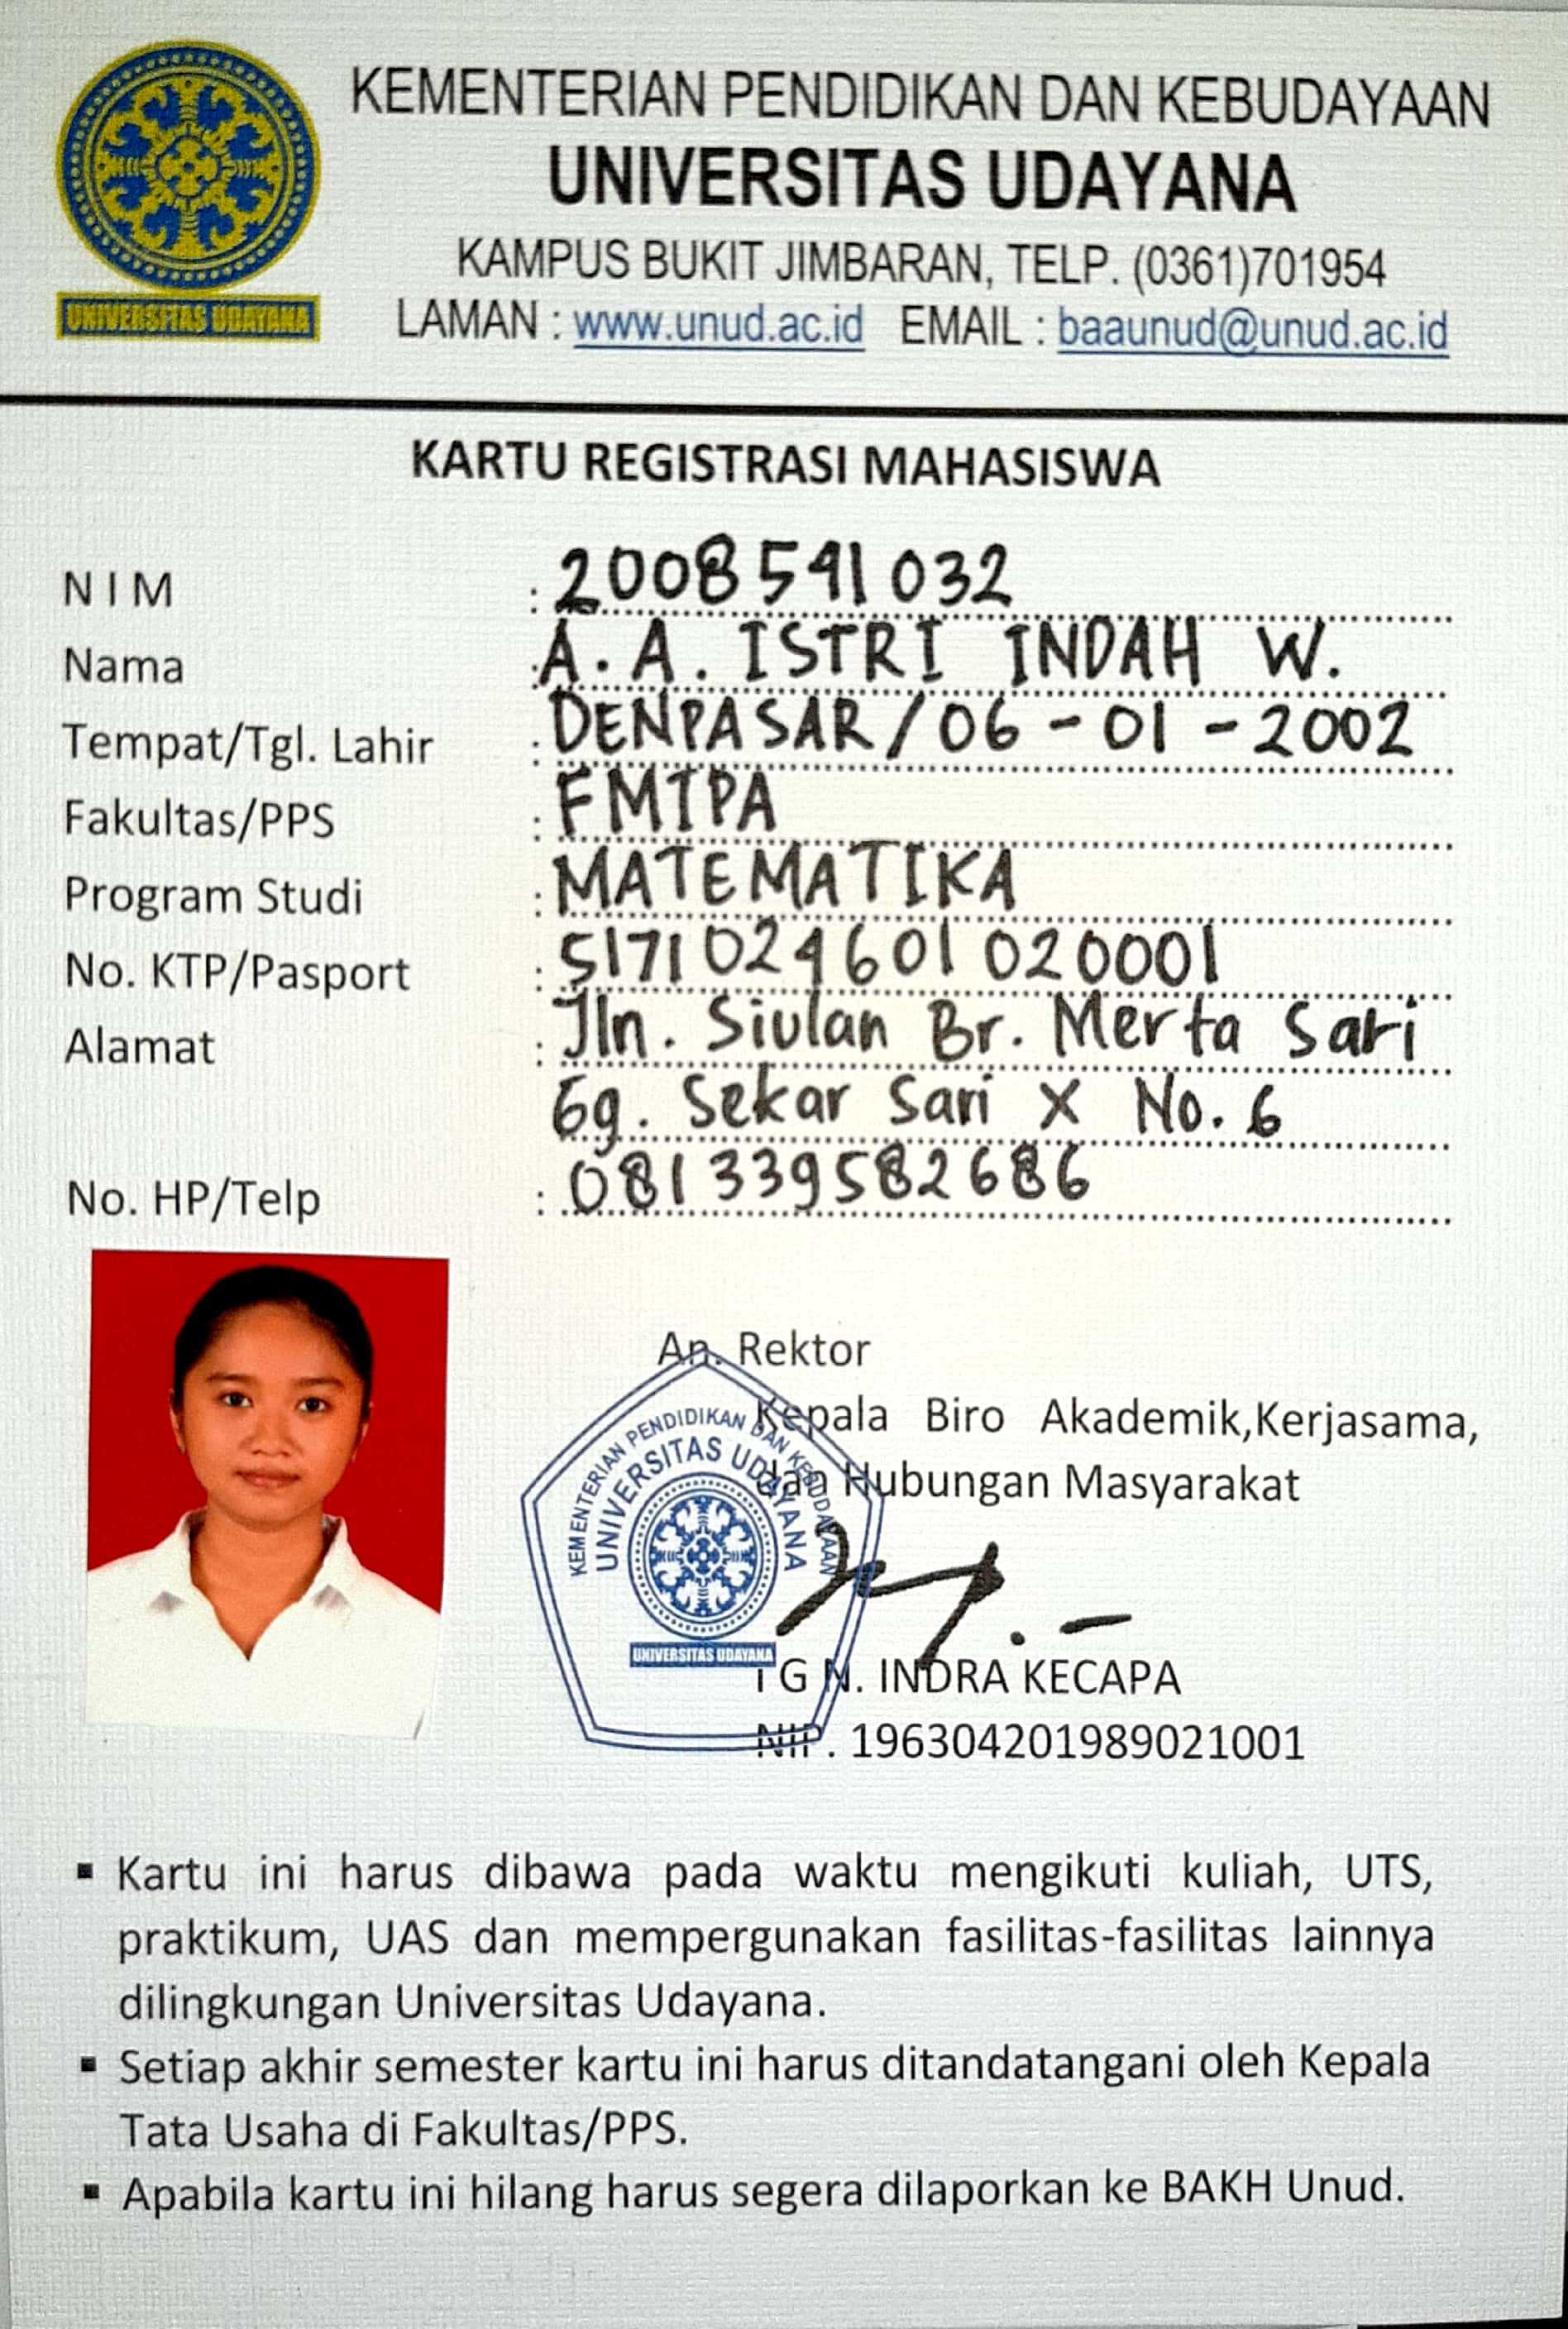 KEMENTERIAN PENDIDIKAN DAN KEBUDAYAAN
UNIVERSITAS UDAYANA
KAMPUS BUKIT JIMBARAN, TELP. (0361)701954
LAMAN : www.unud.ac.id EMAIL : baaunud@unud.ac.id
UNIVERSITAS UDAYANA
KARTU REGISTRASI MAHASISWA
N I M : 2008541032
Nama : A. A. ISTRI INDAH W.
Tempat/Tgl. Lahir : DENPASAR / 06 - 01 - 2002
Fakultas/PPS : FMIPA
Program Studi : MATEMATIKA
No. KTP/Pasport : 5171024601020001
Alamat : Jln. Siulan Br. Merta Sari
Gg. Sekar Sari X No. 6
No. HP/Telp : 081339582686
An. Rektor
Kepala Biro Akademik,Kerjasama,
dan Hubungan Masyarakat
KEMENTERIAN PENDIDIKAN DAN KEBUDAYAAN
UNIVERSITAS UDAYANA
UNIVERSITAS UDAYANA
I G N. INDRA KECAPA
NIP. 196304201989021001
▪ Kartu ini harus dibawa pada waktu mengikuti kuliah, UTS,
praktikum, UAS dan mempergunakan fasilitas-fasilitas lainnya
dilingkungan Universitas Udayana.
▪ Setiap akhir semester kartu ini harus ditandatangani oleh Kepala
Tata Usaha di Fakultas/PPS.
▪ Apabila kartu ini hilang harus segera dilaporkan ke BAKH Unud.